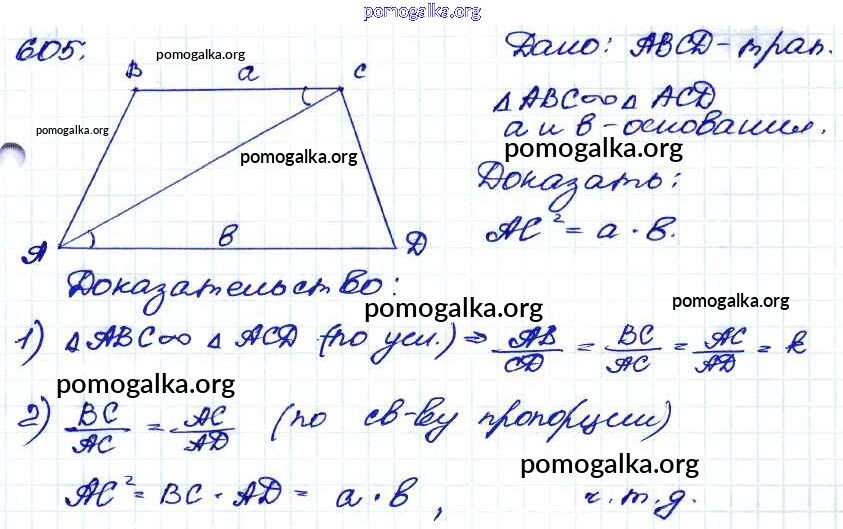 pomogalka.org
605.
pomogalka.org
B a C
pomogalka.org
pomogalka.org
A в D
Дано: ABCD - трап.
△ABC∞△ACD
a и в - основания.
pomogalka.org
Доказать:
AC² = a · в.
Доказательство:
pomogalka.org
pomogalka.org
1) △ABC∞ △ACD (по усл.) ⇒ AB/CD = BC/AC = AC/AD = k
pomogalka.org
2) BC/AC = AC/AD (по св-ву пропорции)
pomogalka.org
AC² = BC · AD = a · в, ч.т.д.